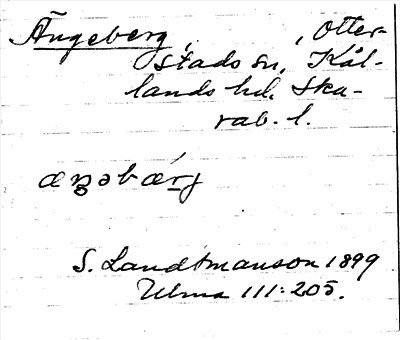 Ängeberg, , Otter-
stads sn, Kål-
lands hd, Ska-
rab. l.
æŋəbærj
S. Landtmanson 1899
Ulma 111:205.